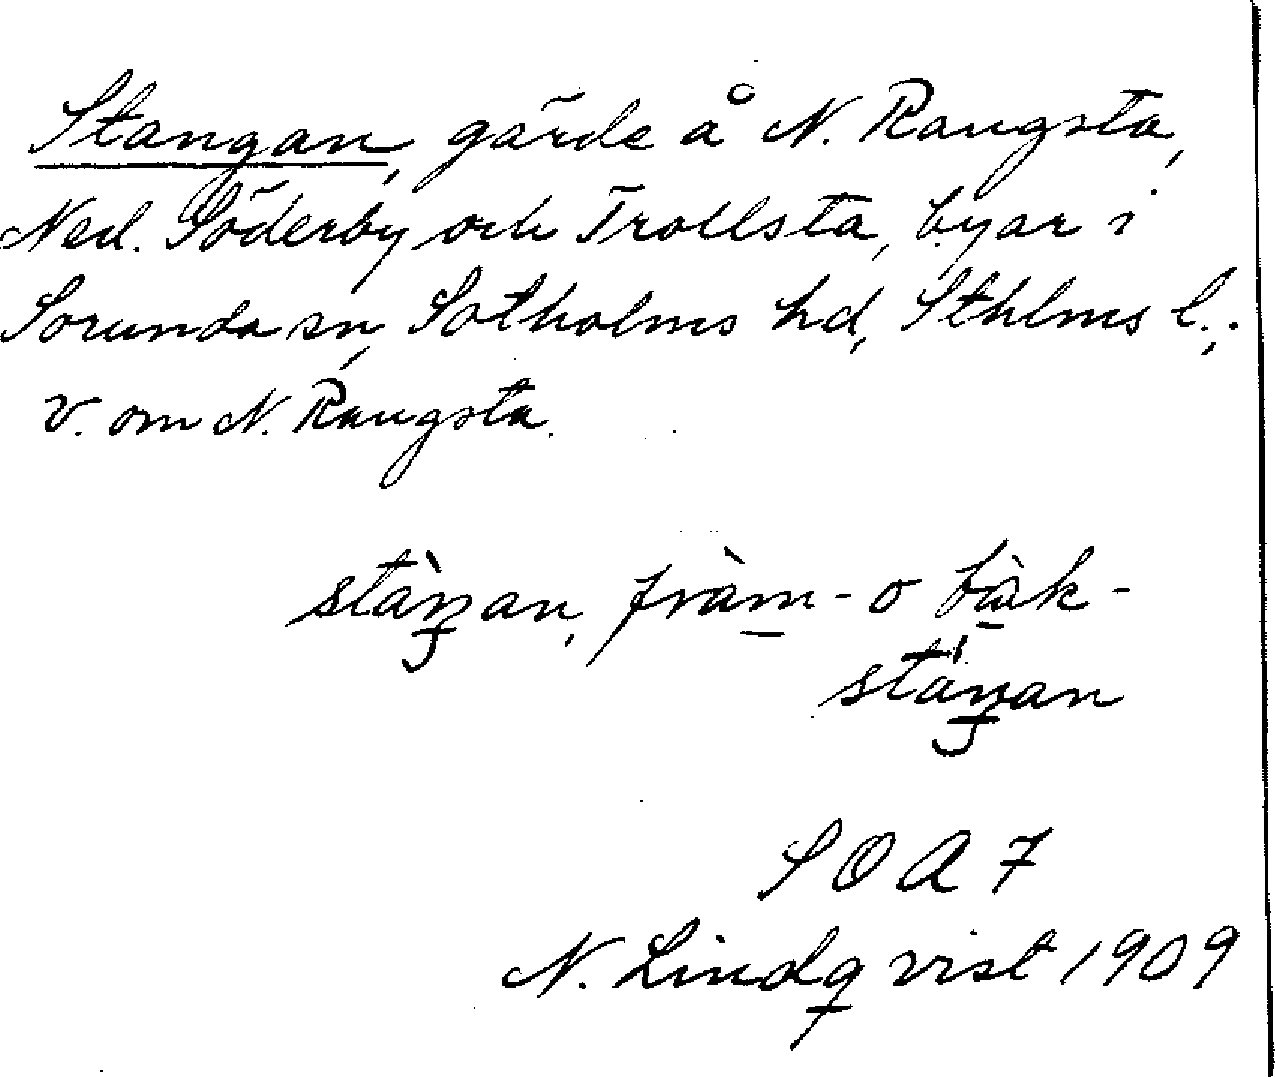 Stangan, gärde å N. Rangsta,
Ned. Söderby och Trollsta, byar i
Sorunda sn, Sotholms hd, Sthlms l.;
v. om N. Rangsta.
stàŋan, fràm- o bàk-
stàŋan
SOA 7
N. Lindqvist 1909